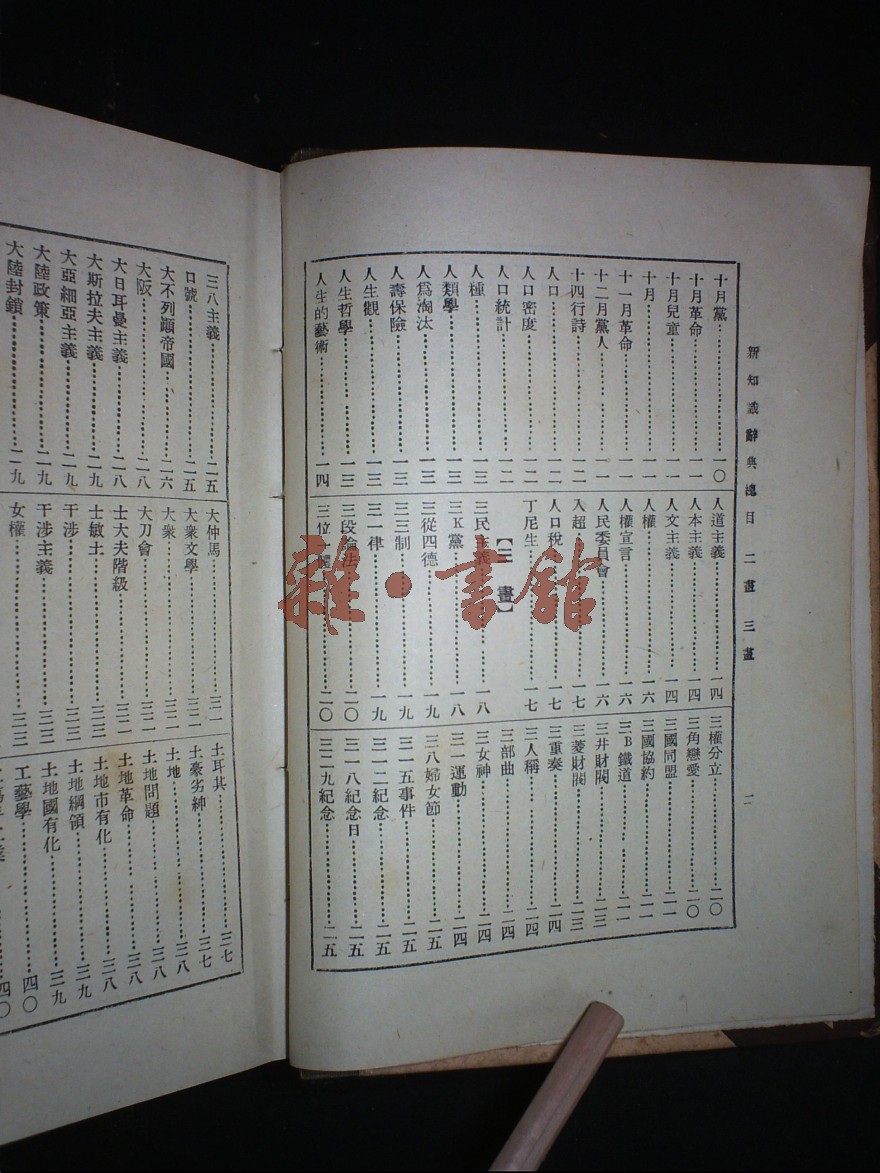 新知識辭典總目 二畫 三畫
二
十月黨……一〇
十月革命……一一
十月兒童……一一
十月……一一
十一月革命……一一
十二月黨人……一一
十四行詩……一二
人口……一二
人口密度……一二
人口統計……一二
人種……一三
人類學……一三
人爲淘汰……一三
人壽保險……一三
人生觀……一三
人生哲學……一三
人生的藝術……一四
人道主義……一四
人本主義……一四
人文主義……一四
人權……一六
人權宣言……一六
人民委員會……一六
入超……一七
人口稅……一七
丁尼生……一七
【三畫】
三民主義……一八
三K黨……一八
三從四德……一九
三三制……一九
三一律……一九
三段論法……二〇
三位一體……二〇
三權分立……二〇
三角戀愛……二〇
三國同盟……二一
三國協約……二一
三B鐵道……二一
三井財閥……二三
三菱財閥……二三
三重奏……二四
三人稱……二四
三部曲……二四
三女神……二四
三一運動……二四
三八婦女節……二五
三一五事件……二五
三一二紀念……二五
三一八紀念日……二五
三二九紀念……二五
三八主義……二五
口號……二五
大不列顚帝國……二六
大阪……二八
大日耳曼主義……二八
大斯拉夫主義……二九
大亞細亞主義……二九
大陸政策……二九
大陸封鎖……二九
大仲馬……三一
大衆文學……三二
大衆……三二
大刀會……三二
士大夫階級……三二
士敏土……三三
干涉……三三
干涉主義……三三
女權……三三
土耳其……三七
土豪劣紳……三七
土地……三八
土地問題……三八
土地革命……三八
土地市有化……三八
土地綱領……三九
土地國有化……三九
工藝學……四〇
四〇
雜·書館